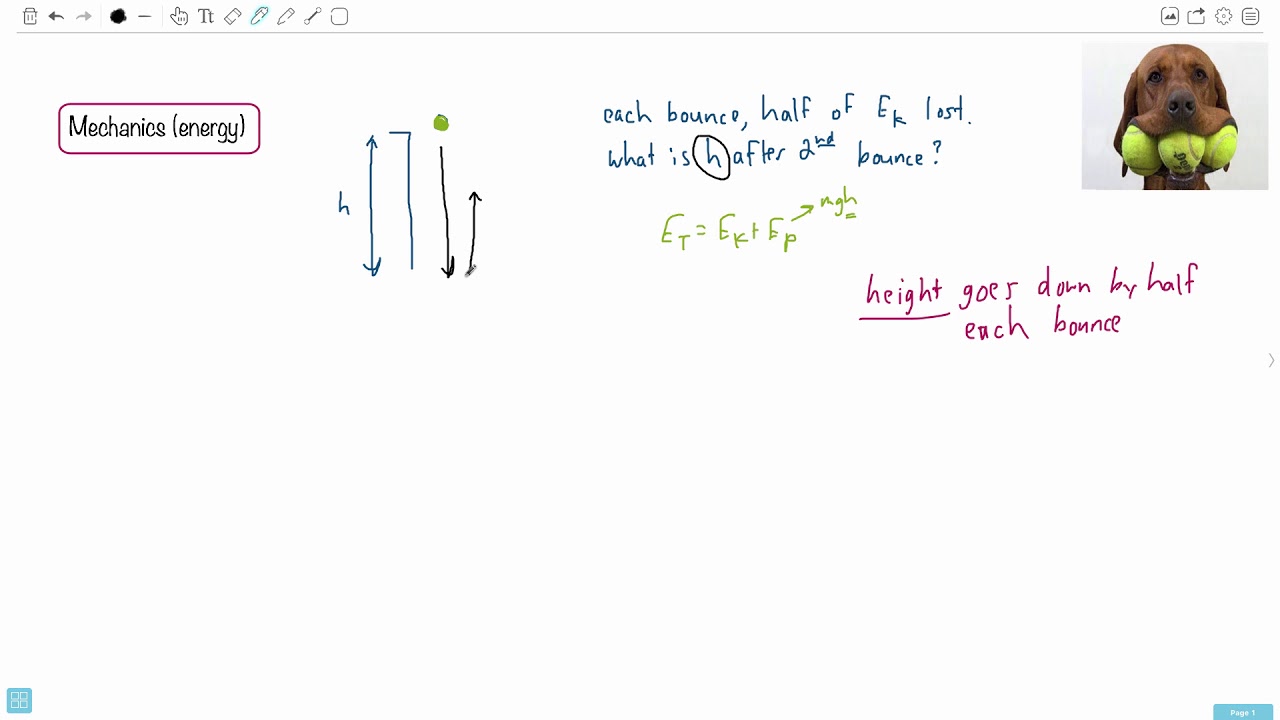 Tt
Mechanics (energy)
each bounce, half of Eₖ lost.
what is h after 2nd bounce?
h
mgh
E_T = E_K + E_P
height goes down by half
each bounce
Page 1